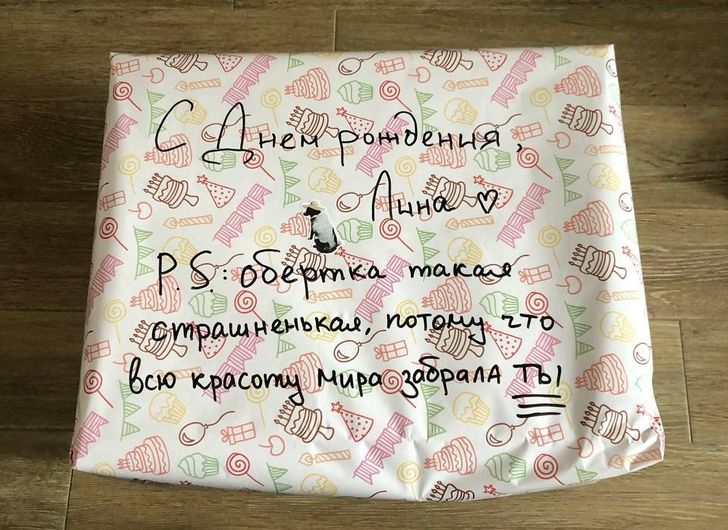 С Днем рождения,
Лина ♡
P.S.: обертка такая
страшненькая, потому что
всю красоту мира забрала ТЫ